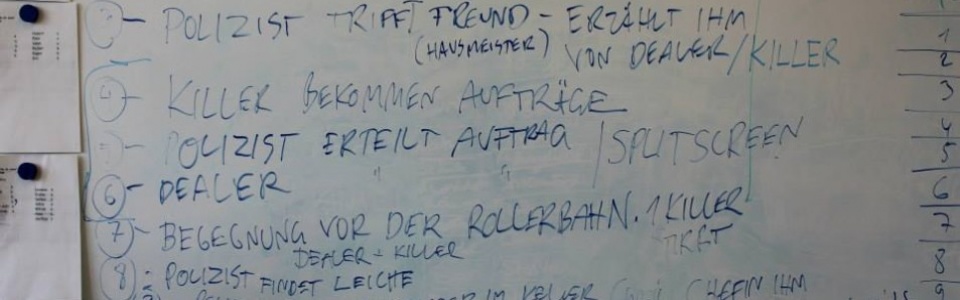 ③- POLIZIST TRIFFT FREUND - ERZÄHLT IHM
(HAUSMEISTER) VON DEALER/KILLER
- KILLER BEKOMMEN AUFTRÄGE
- POLIZIST ERTEILT AUFTRAG /SPLITSCREEN
⑥- DEALER " "
⑦- BEGEGNUNG VOR DER ROLLERBAHN. 1 KILLER
DEALER - KILLER
⑧- POLIZIST FINDET LEICHE
IM KELLER CHEFIN IHM
1
2
3
4
5
6
7
8
9